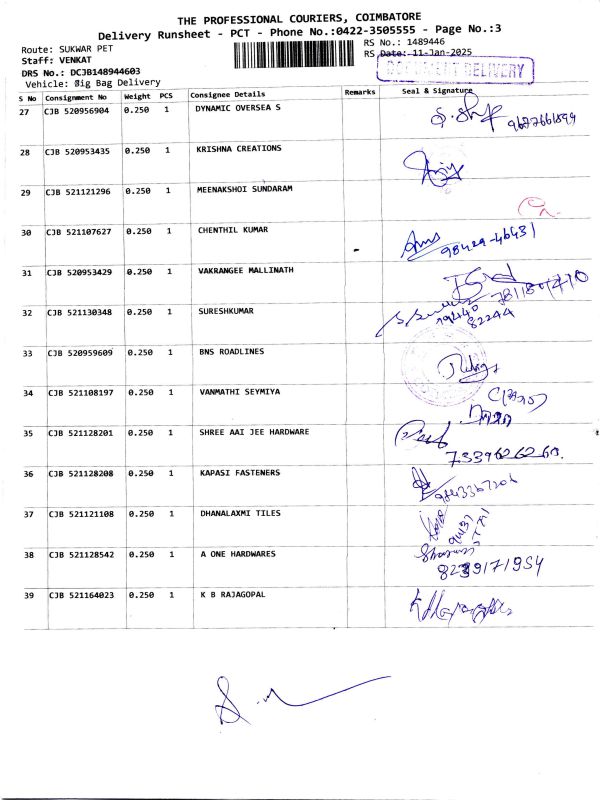 THE PROFESSIONAL COURIERS, COIMBATORE
Delivery Runsheet - PCT - Phone No.:0422-3505555 - Page No.:3
Route: SUKWAR PET
RS No.: 1489446
Staff: VENKAT
RS Date: 11-Jan-2025
DRS No.: DCJB148944603
DOCUMENT DELIVERY
Vehicle: Big Bag Delivery
S No Consignment No Weight PCS Consignee Details Remarks Seal & Signature
27 CJB 520956904 0.250 1 DYNAMIC OVERSEA S
28 CJB 520953435 0.250 1 KRISHNA CREATIONS
29 CJB 521121296 0.250 1 MEENAKSHOI SUNDARAM
30 CJB 521107627 0.250 1 CHENTHIL KUMAR
98429-46431
31 CJB 520953429 0.250 1 VAKRANGEE MALLINATH
32 CJB 521130348 0.250 1 SURESHKUMAR
79440
82244
33 CJB 520959609 0.250 1 BNS ROADLINES
34 CJB 521108197 0.250 1 VANMATHI SEYMIYA
35 CJB 521128201 0.250 1 SHREE AAI JEE HARDWARE
7339626260.
36 CJB 521128208 0.250 1 KAPASI FASTENERS
9843367206
37 CJB 521121108 0.250 1 DHANALAXMI TILES
38 CJB 521128542 0.250 1 A ONE HARDWARES
8239171954
39 CJB 521164023 0.250 1 K B RAJAGOPAL